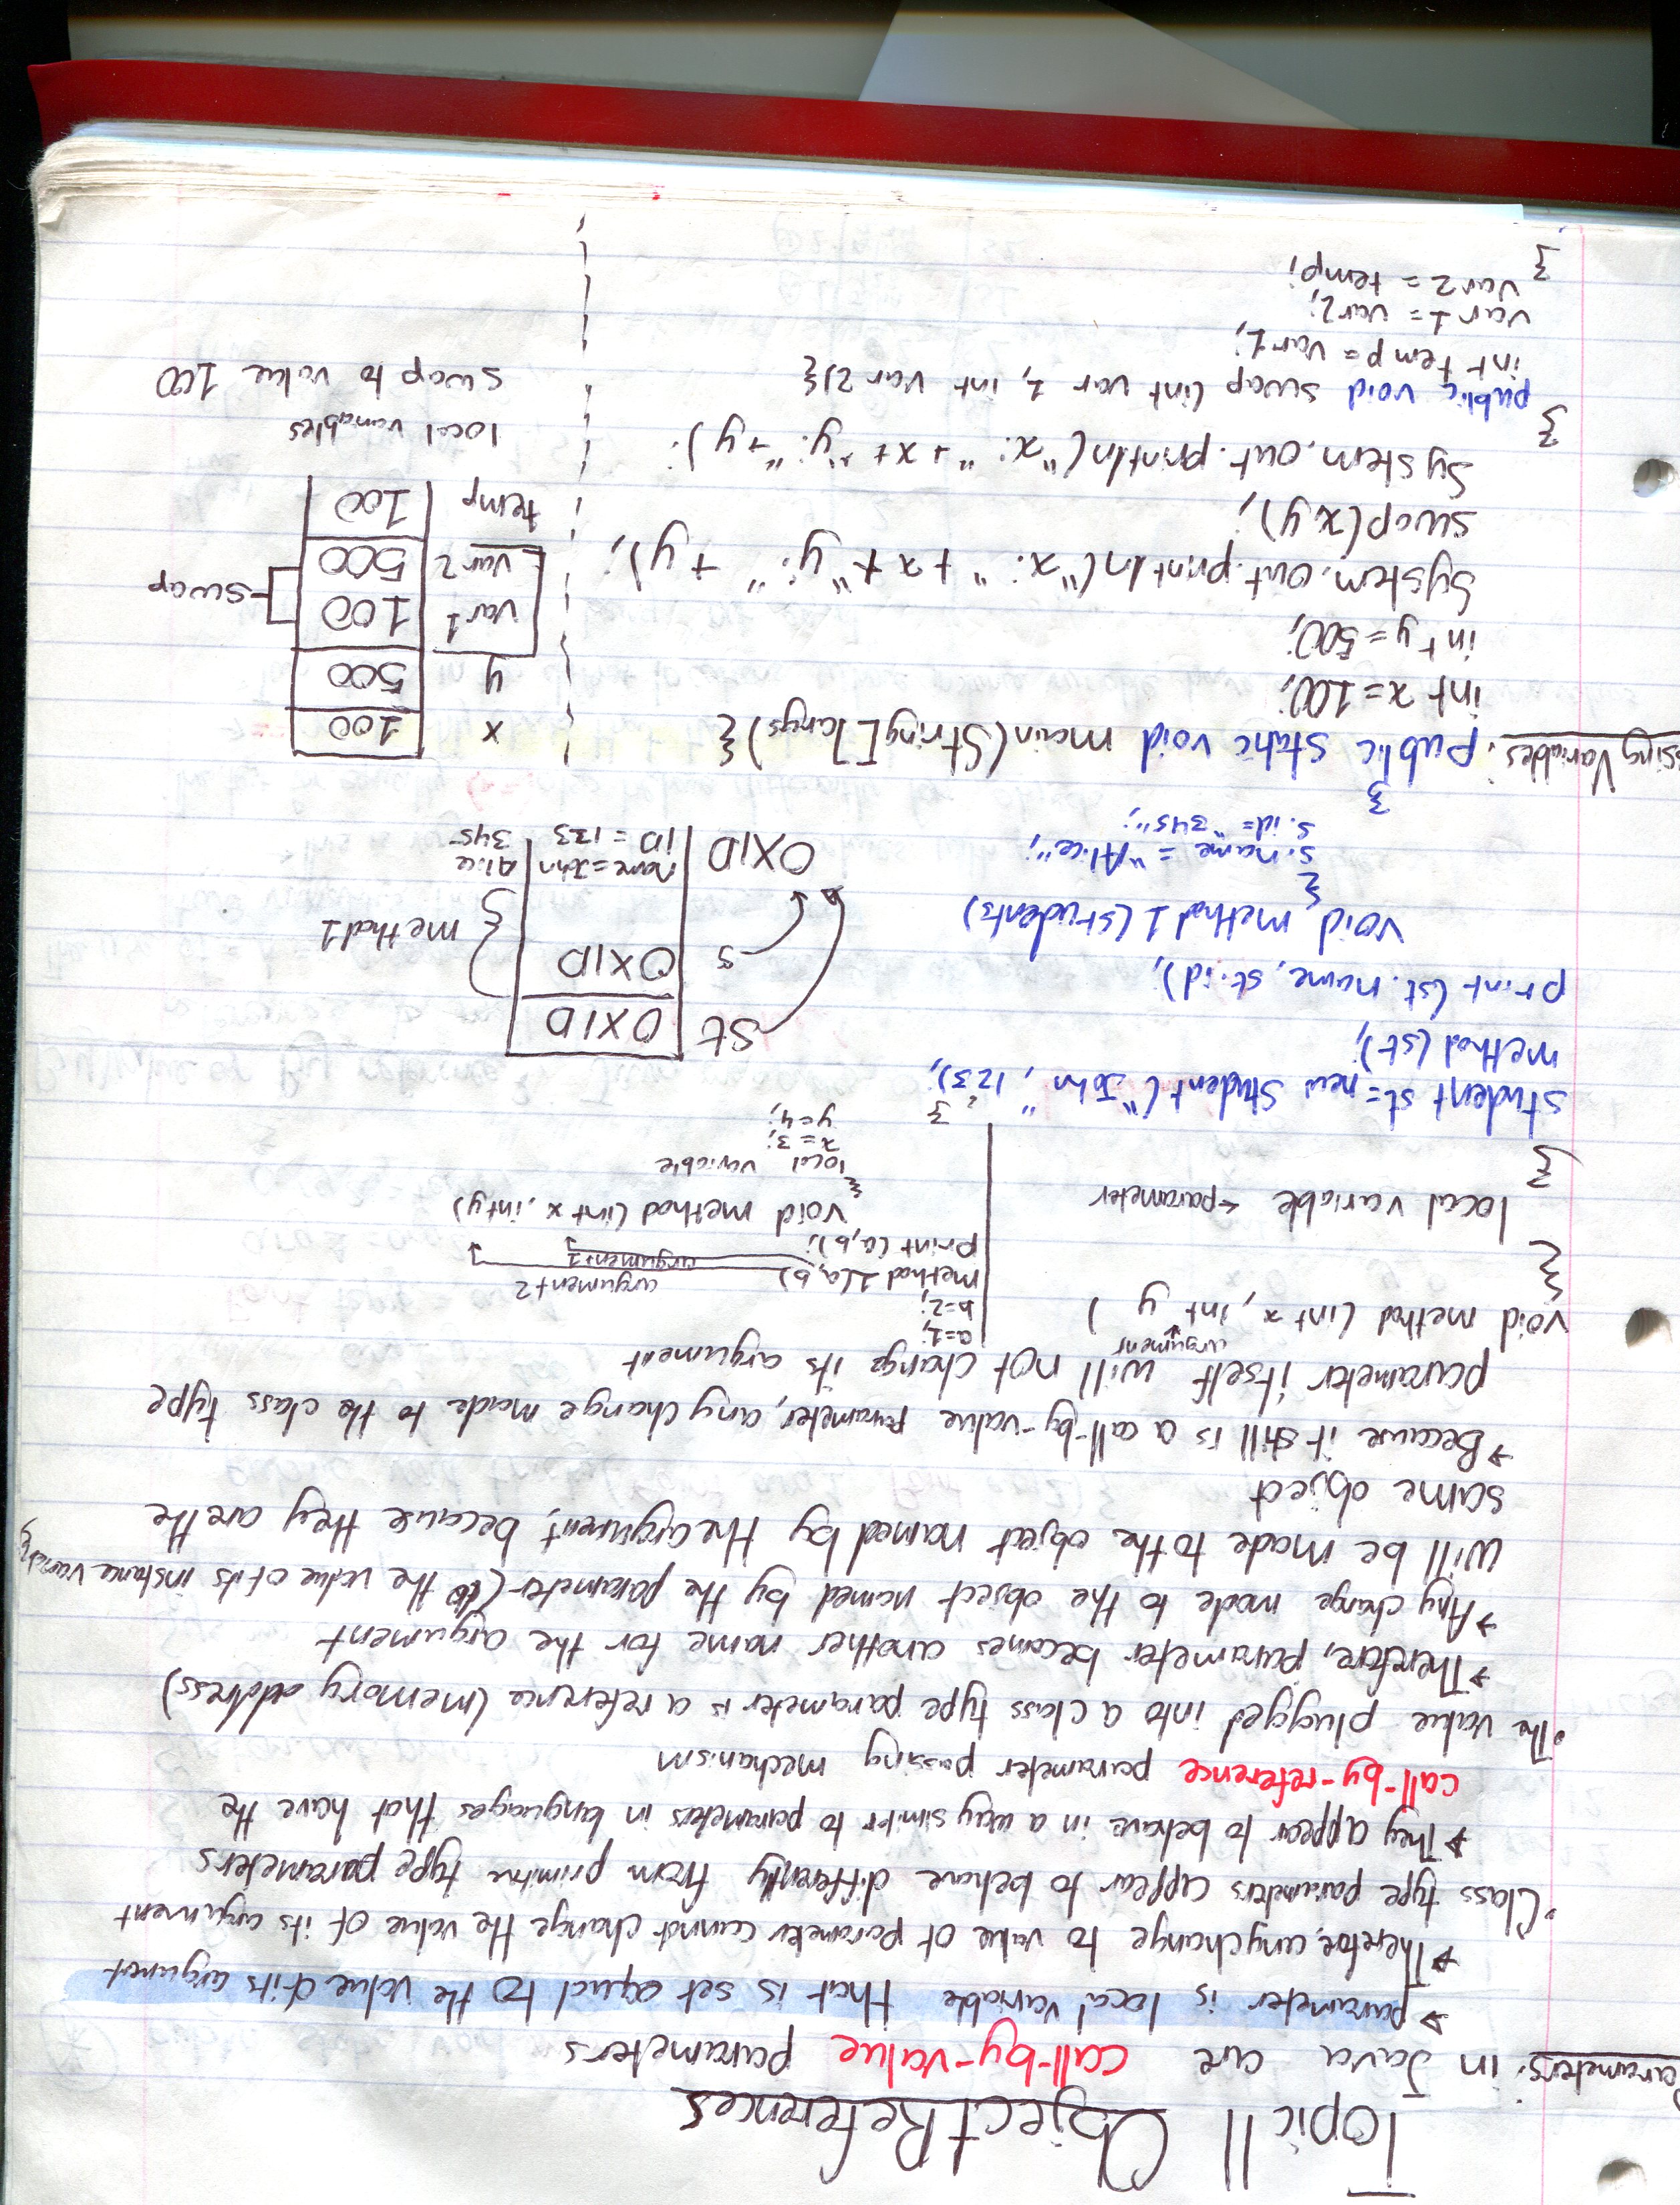 Topic 11 Object References
Parameters: in Java are call-by-value parameters
→ parameter is local variable that is set equal to the value of its argument
→ Therefore, any change to value of parameter cannot change the value of its argument
• Class type parameters appear to behave differently from primitive type parameters
→ They appear to behave in a way similar to parameters in languages that have the
call-by-reference parameter passing mechanism
• The value plugged into a class type parameter is a reference (memory address)
→ Therefore, parameter becomes another name for the argument
→ Any change made to the object named by the parameter (to the value of its instance variables)
will be made to the object named by the argument, because they are the
same object
→ Because it still is a call-by-value parameter, any change made to the class type
parameter itself will not change its argument
argument
void method (int x, int y )
{
local variable ← parameter
}
a=1;
b=2;
method 1(a,b)
argument 2
argument 1
print (a,b);
void method (int x, int y)
{
local variable
x = 3;
y=4;
}
Student st = new Student ("John", 123);
method (st);
print (st. name, st. id);
void method 1 (students)
{
s. name = "Alice";
s. id = "345";
}
st 0X1D
s 0X1D
method 1
0X1D name=John Alice
ID = 123 345
ssing Variables: public static void main(String[ ]args){
int x = 100;
int y = 500;
System.out.println("x: " + x + "y: " + y);
swap(x,y);
System.out.println("x: " + x + "y: " + y);
}
public void swap (int var 1, int var 2){
int temp = var 1;
var 1 = var 2;
var 2 = temp;
}
x 100
y 500
var 1 100
var 2 500
swap
temp 100
local variables
swap to value 100